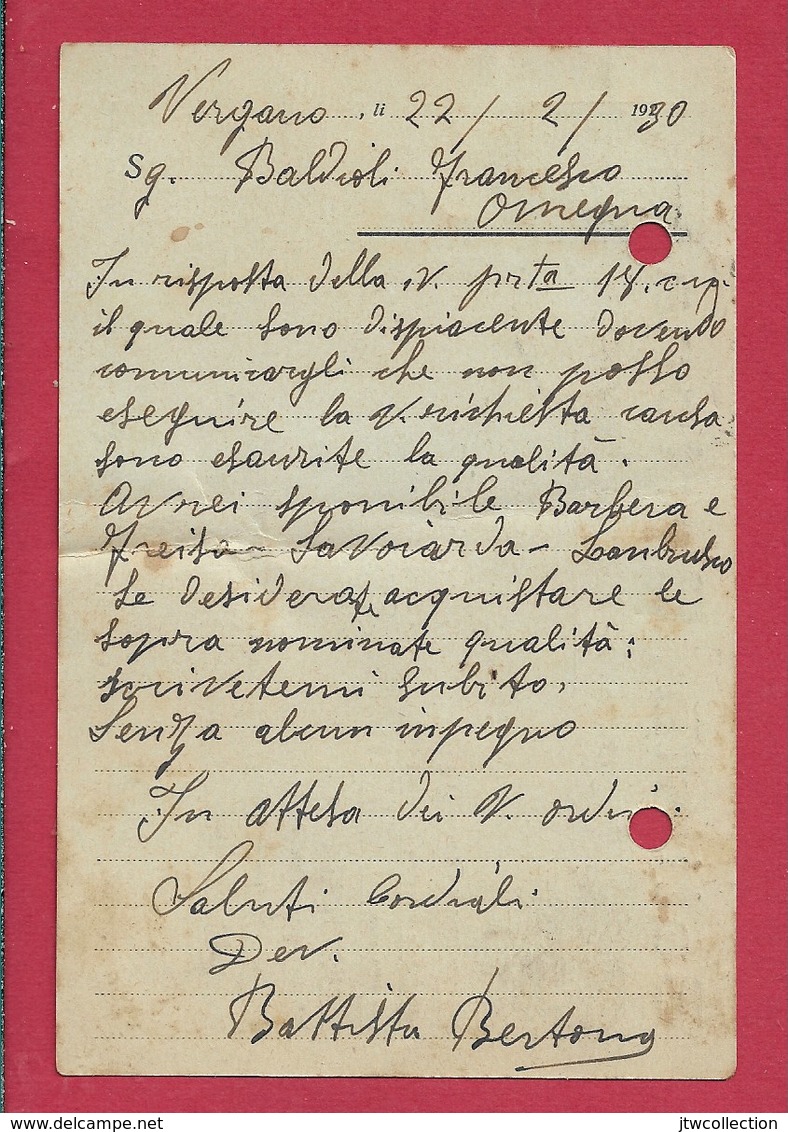 Vergano, li 22 / 2 / 1930
Sg. Baldioli Francesco
Omegna
In risposta della V. prta 18. cm.
il quale sono dispiacente dovendo
comunicargli che non posso
eseguire la V. richiesta causa
sono esaurite la qualità.
Avrei sponibile Barbera e
Freisa - Savoiarda - Lanbrusco
Se desiderate acquistare le
sopra nominate qualità:
scrivetemi subito,
Senza alcun inpegno
In attesa dei V. ordini.
Saluti Cordiali
Dev.
Battista Bertona
www.delcampe.net
jtwcollection